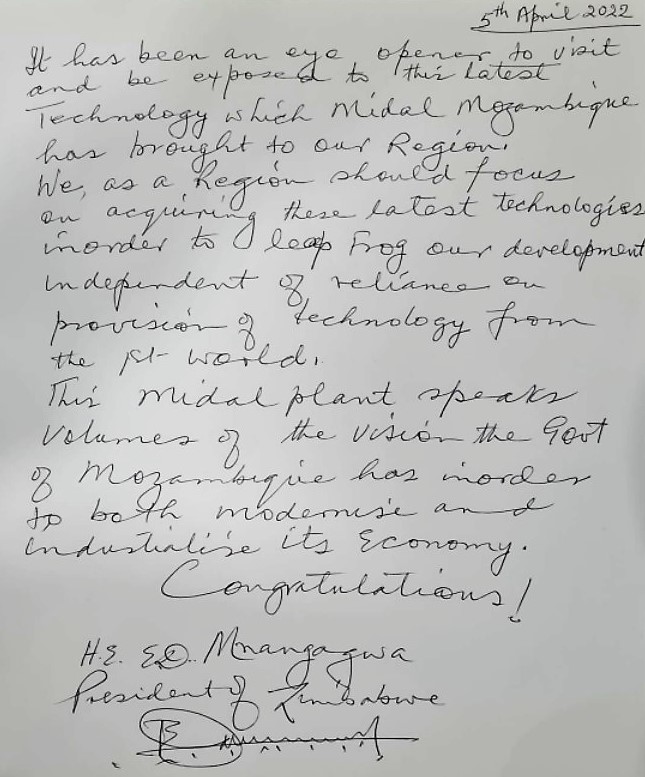 5th April 2022
It has been an eye opener to visit
and be exposed to this Latest
Technology which Midal Mozambique
has brought to our Region.
We, as a Region should focus
on acquiring these latest technologies
inorder to leap Frog our development
independent of reliance on
provision of technology from
the 1st world.
This Midal plant speaks
volumes of the vision the Govt
of Mozambique has inorder
to both modernise and
industialise its Economy.
Congratulations!
H.E. ED. Mnangagwa
President of Zimbabwe